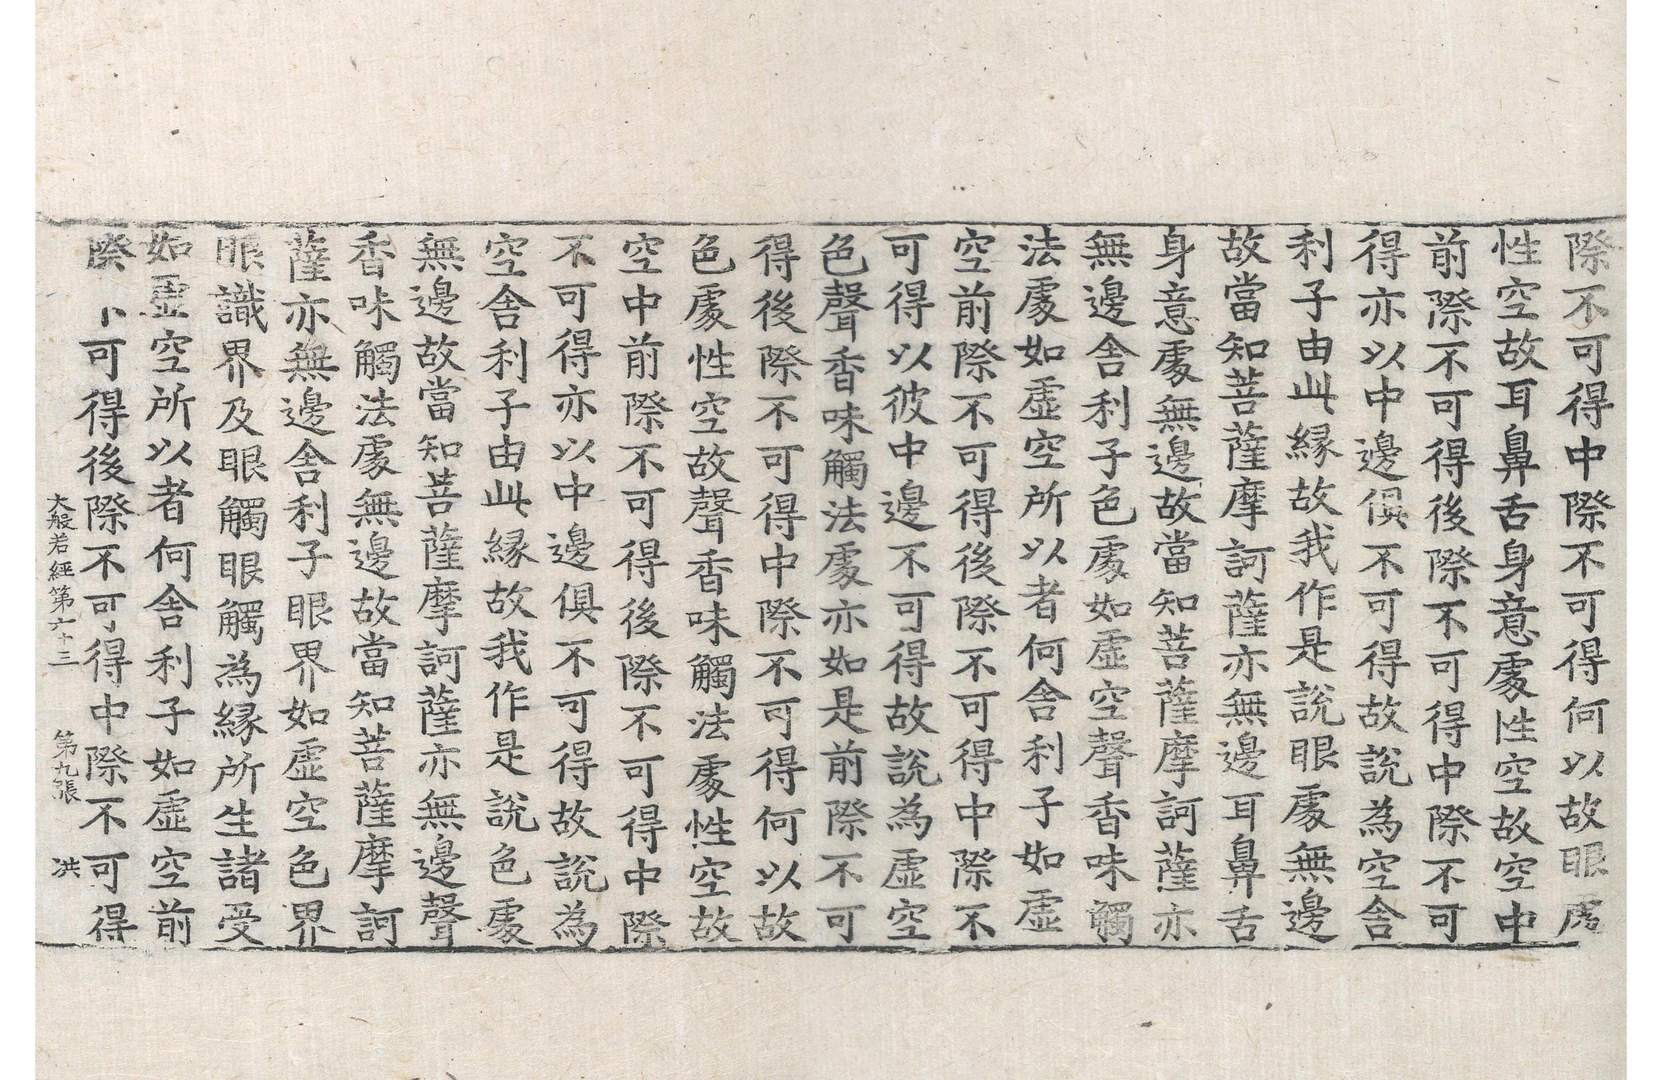 際不可得中際不可得何以故眼處
性空故耳鼻舌身意處性空故空中
前際不可得後際不可得中際不可
得亦以中邊俱不可得故說為空舍
利子由此緣故我作是說眼處無邊
故當知菩薩摩訶薩亦無邊耳鼻舌
身意處無邊故當知菩薩摩訶薩亦
無邊舍利子色處如虛空聲香味觸
法處如虛空所以者何舍利子如虛
空前際不可得後際不可得中際不
可得以彼中邊不可得故說為虛空
色聲香味觸法處亦如是前際不可
得後際不可得中際不可得何以故
色處性空故聲香味觸法處性空故
空中前際不可得後際不可得中際
不可得亦以中邊俱不可得故說為
空舍利子由此緣故我作是說色處
無邊故當知菩薩摩訶薩亦無邊聲
香味觸法處無邊故當知菩薩摩訶
薩亦無邊舍利子眼界如虛空色界
眼識界及眼觸眼觸為緣所生諸受
如虛空所以者何舍利子如虛空前
際不可得後際不可得中際不可得
大般若經第六十三 第九張 洪